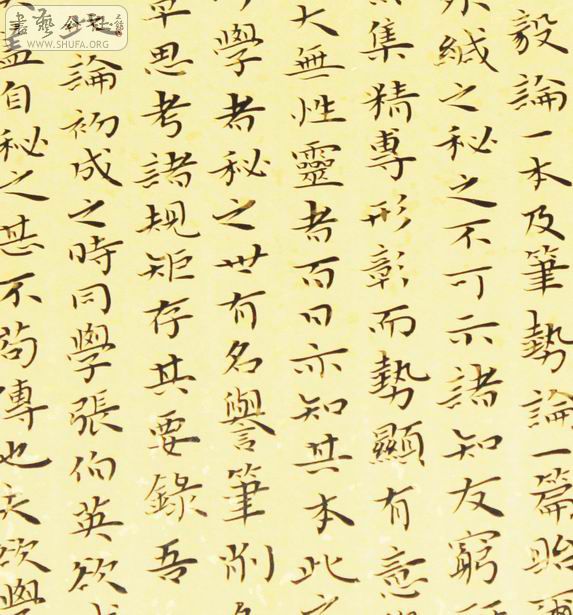 毅論一本及筆勢論一篇貽
緘之秘之不可示諸知友窮
集精專形彰而勢顯有意
大無性靈者百日亦知其本此之
學者秘之世有名譽筆削
草思考諸規矩存其要錄吾
論初成之時同學張伯英欲
自秘之甚不苟傳也 欲學
书艺公社
WWW.SHUFA.ORG